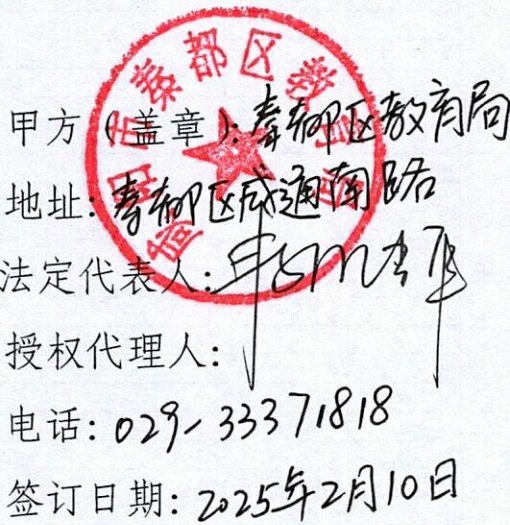 咸阳市秦都区教育局
甲方（盖章）：秦都区教育局
地址：秦都区咸通南路
法定代表人：
授权代理人：
电话：029-33371818
签订日期：2025年2月10日